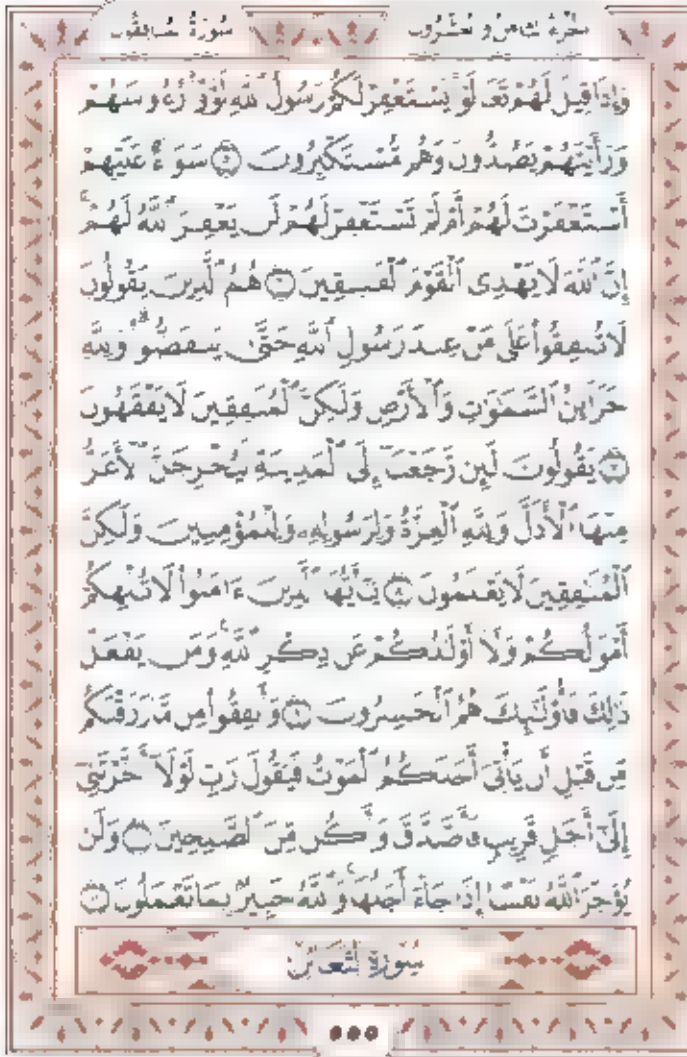 سُورَةُ المُنَافِقُونَ
الجُزْءُ الثَّامِنُ وَالعِشْرُونَ
وَإِذَا قِيلَ لَهُمْ تَعَالَوْا۟ يَسْتَغْفِرْ لَكُمْ رَسُولُ ٱللَّهِ لَوَّوْا۟ رُءُوسَهُمْ
وَرَأَيْتَهُمْ يَصُدُّونَ وَهُم مُّسْتَكْبِرُونَ ۝٥ سَوَآءٌ عَلَيْهِمْ
أَسْتَغْفَرْتَ لَهُمْ أَمْ لَمْ تَسْتَغْفِرْ لَهُمْ لَن يَغْفِرَ ٱللَّهُ لَهُمْ ۚ
إِنَّ ٱللَّهَ لَا يَهْدِى ٱلْقَوْمَ ٱلْفَـٰسِقِينَ ۝٦ هُمُ ٱلَّذِينَ يَقُولُونَ
لَا تُنفِقُوا۟ عَلَىٰ مَنْ عِندَ رَسُولِ ٱللَّهِ حَتَّىٰ يَنفَضُّوا۟ ۗ وَلِلَّهِ
خَزَآئِنُ ٱلسَّمَـٰوَٰتِ وَٱلْأَرْضِ وَلَـٰكِنَّ ٱلْمُنَـٰفِقِينَ لَا يَفْقَهُونَ
۝٧ يَقُولُونَ لَئِن رَّجَعْنَآ إِلَى ٱلْمَدِينَةِ لَيُخْرِجَنَّ ٱلْأَعَزُّ
مِنْهَا ٱلْأَذَلَّ ۚ وَلِلَّهِ ٱلْعِزَّةُ وَلِرَسُولِهِۦ وَلِلْمُؤْمِنِينَ وَلَـٰكِنَّ
ٱلْمُنَـٰفِقِينَ لَا يَعْلَمُونَ ۝٨ يَـٰٓأَيُّهَا ٱلَّذِينَ ءَامَنُوا۟ لَا تُلْهِكُمْ
أَمْوَٰلُكُمْ وَلَآ أَوْلَـٰدُكُمْ عَن ذِكْرِ ٱللَّهِ ۚ وَمَن يَفْعَلْ
ذَٰلِكَ فَأُو۟لَـٰٓئِكَ هُمُ ٱلْخَـٰسِرُونَ ۝٩ وَأَنفِقُوا۟ مِن مَّا رَزَقْنَـٰكُم
مِّن قَبْلِ أَن يَأْتِىَ أَحَدَكُمُ ٱلْمَوْتُ فَيَقُولَ رَبِّ لَوْلَآ أَخَّرْتَنِىٓ
إِلَىٰٓ أَجَلٍ قَرِيبٍ فَأَصَّدَّقَ وَأَكُن مِّنَ ٱلصَّـٰلِحِينَ ۝١٠ وَلَن
يُؤَخِّرَ ٱللَّهُ نَفْسًا إِذَا جَآءَ أَجَلُهَا ۚ وَٱللَّهُ خَبِيرٌۢ بِمَا تَعْمَلُونَ ۝١١
سُورَةُ التَّغَابُنِ
٥٥٥